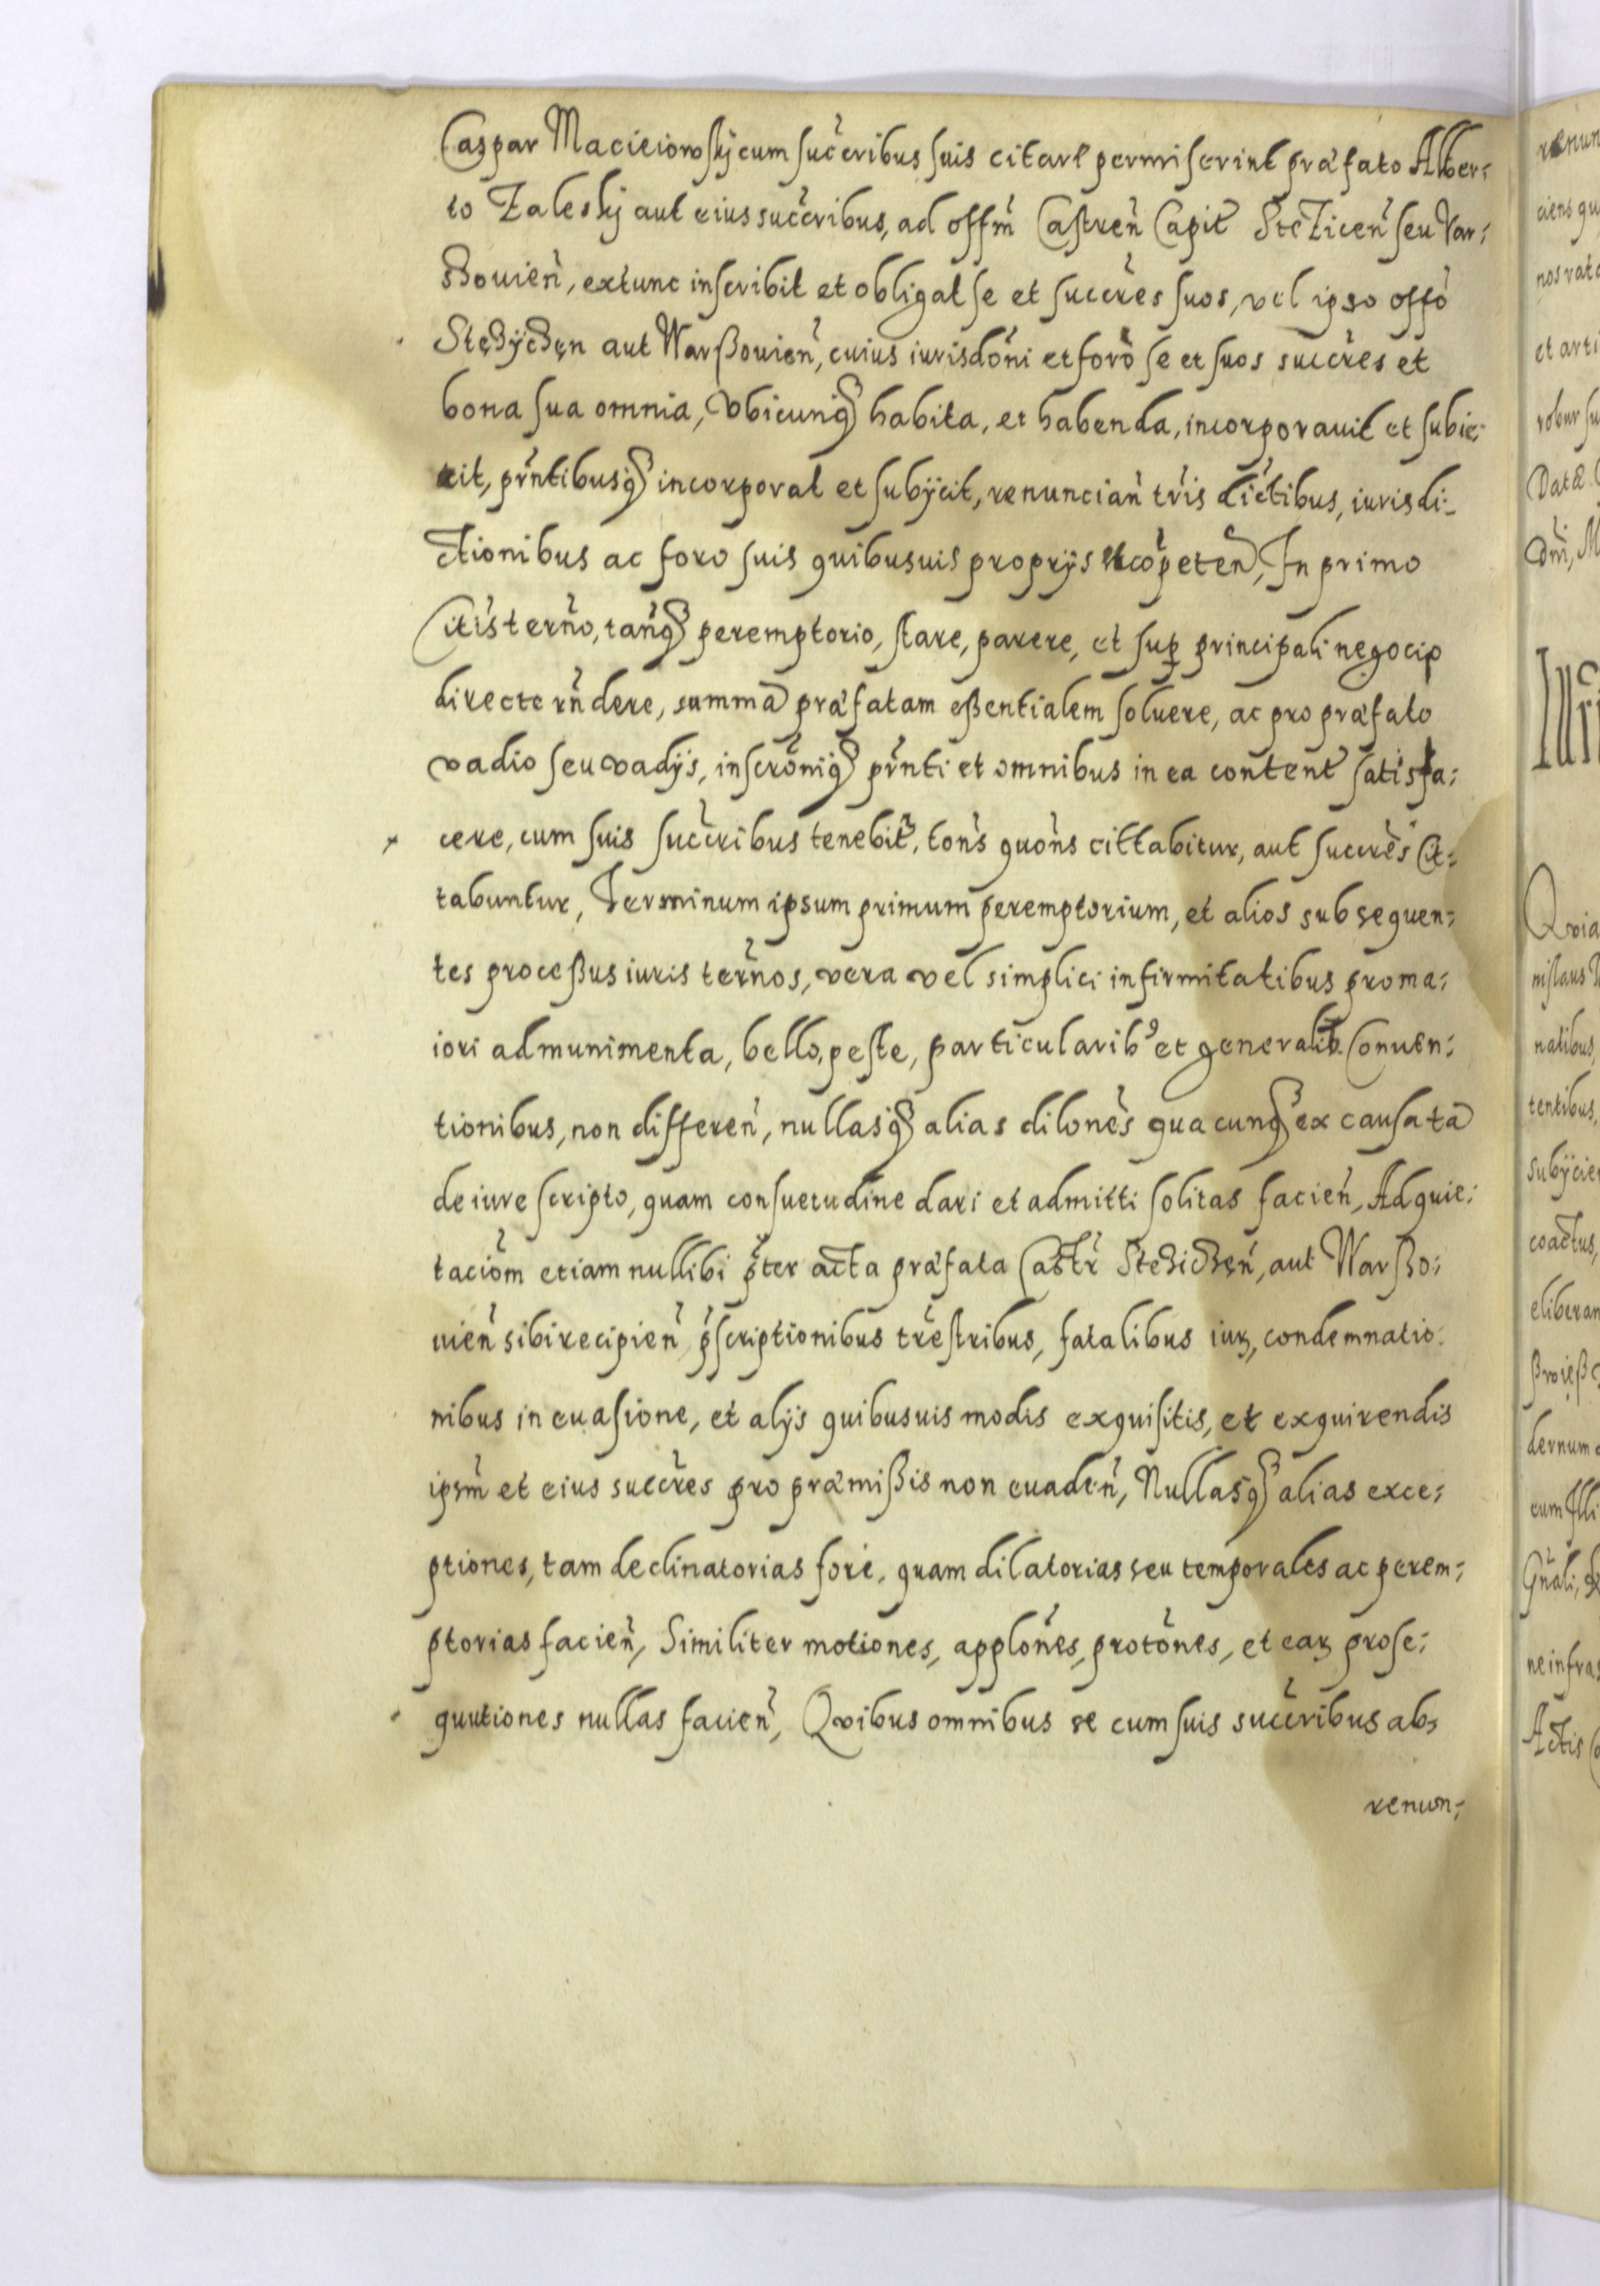 Caspar Macieiowskÿ cum succribus suis citari permiserint præfato Alber:
to Zaleskÿ aut eius succribus, ad offm̃ Castreñ Capit̃ Stezicen̄ seu Var:
ßouien̄, extunc inscribit et obligat se et succres suos, vel ipso offo
Stęzÿczęn aut Warßouien̄, cuius iurisdōni et foro se et suos succres et
bona sua omnia, vbicunq habita, et habenda, incorporauit et subie:
cit, pñtibusq incorporat et subÿcit, renuncian̄ tr̃is dictibus, iurisdi:
ctionibus ac foro suis quibusuis proprÿs et cōpeten̄, In primo
Citis terno, tanq peremptorio, stare, parere, et sup principali negocio
directe rn̄dere, summā præfatam eßentialem soluere, ac pro præfato
vadio seu vadÿs, inscrōniq prn̄ti et omnibus in ea content̃ satisfa:
cere, cum suis succribus tenebit̃, ton̄s quon̄s cittabitur, aut succres Cit:
tabuntur, Terminum ipsum primum peremptorium, et alios subsequen:
tes proceßus iuris tern̄os, vera vel simplici infirmitatibus pro ma:
iori ad munimenta, bello, peste, particularibꝰ et generalib. Conuen:
tionibus, non differen̄, nullasq alias dilones quacunq ex causa tā
de iure scripto, quam consuetudine dari et admitti solitas facien̄, Ad quie:
taciōm etiam nullibi pter acta præfata Castr̃ Steziczęn̄, aut Warßo:
uien̄ sibi recipien̄ pscriptionibus trestribus, fatalibus iuꝝ, condemnatio:
nibus in euasione, et alÿs quibusuis modis exquisitis, et exquirendis
ipsm̃ et eius succres pro præmißis non euaden̄, Nullasq alias exce:
ptiones, tam declinatorias fori, quam dilatorias seu temporales ac perem:
ptorias facien̄, Similiter motiones, applōnes, protōnes, et eaꝝ prose:
quutiones nullas facien̄, Quibus omnibus se cum suis succribus ab:
renun: